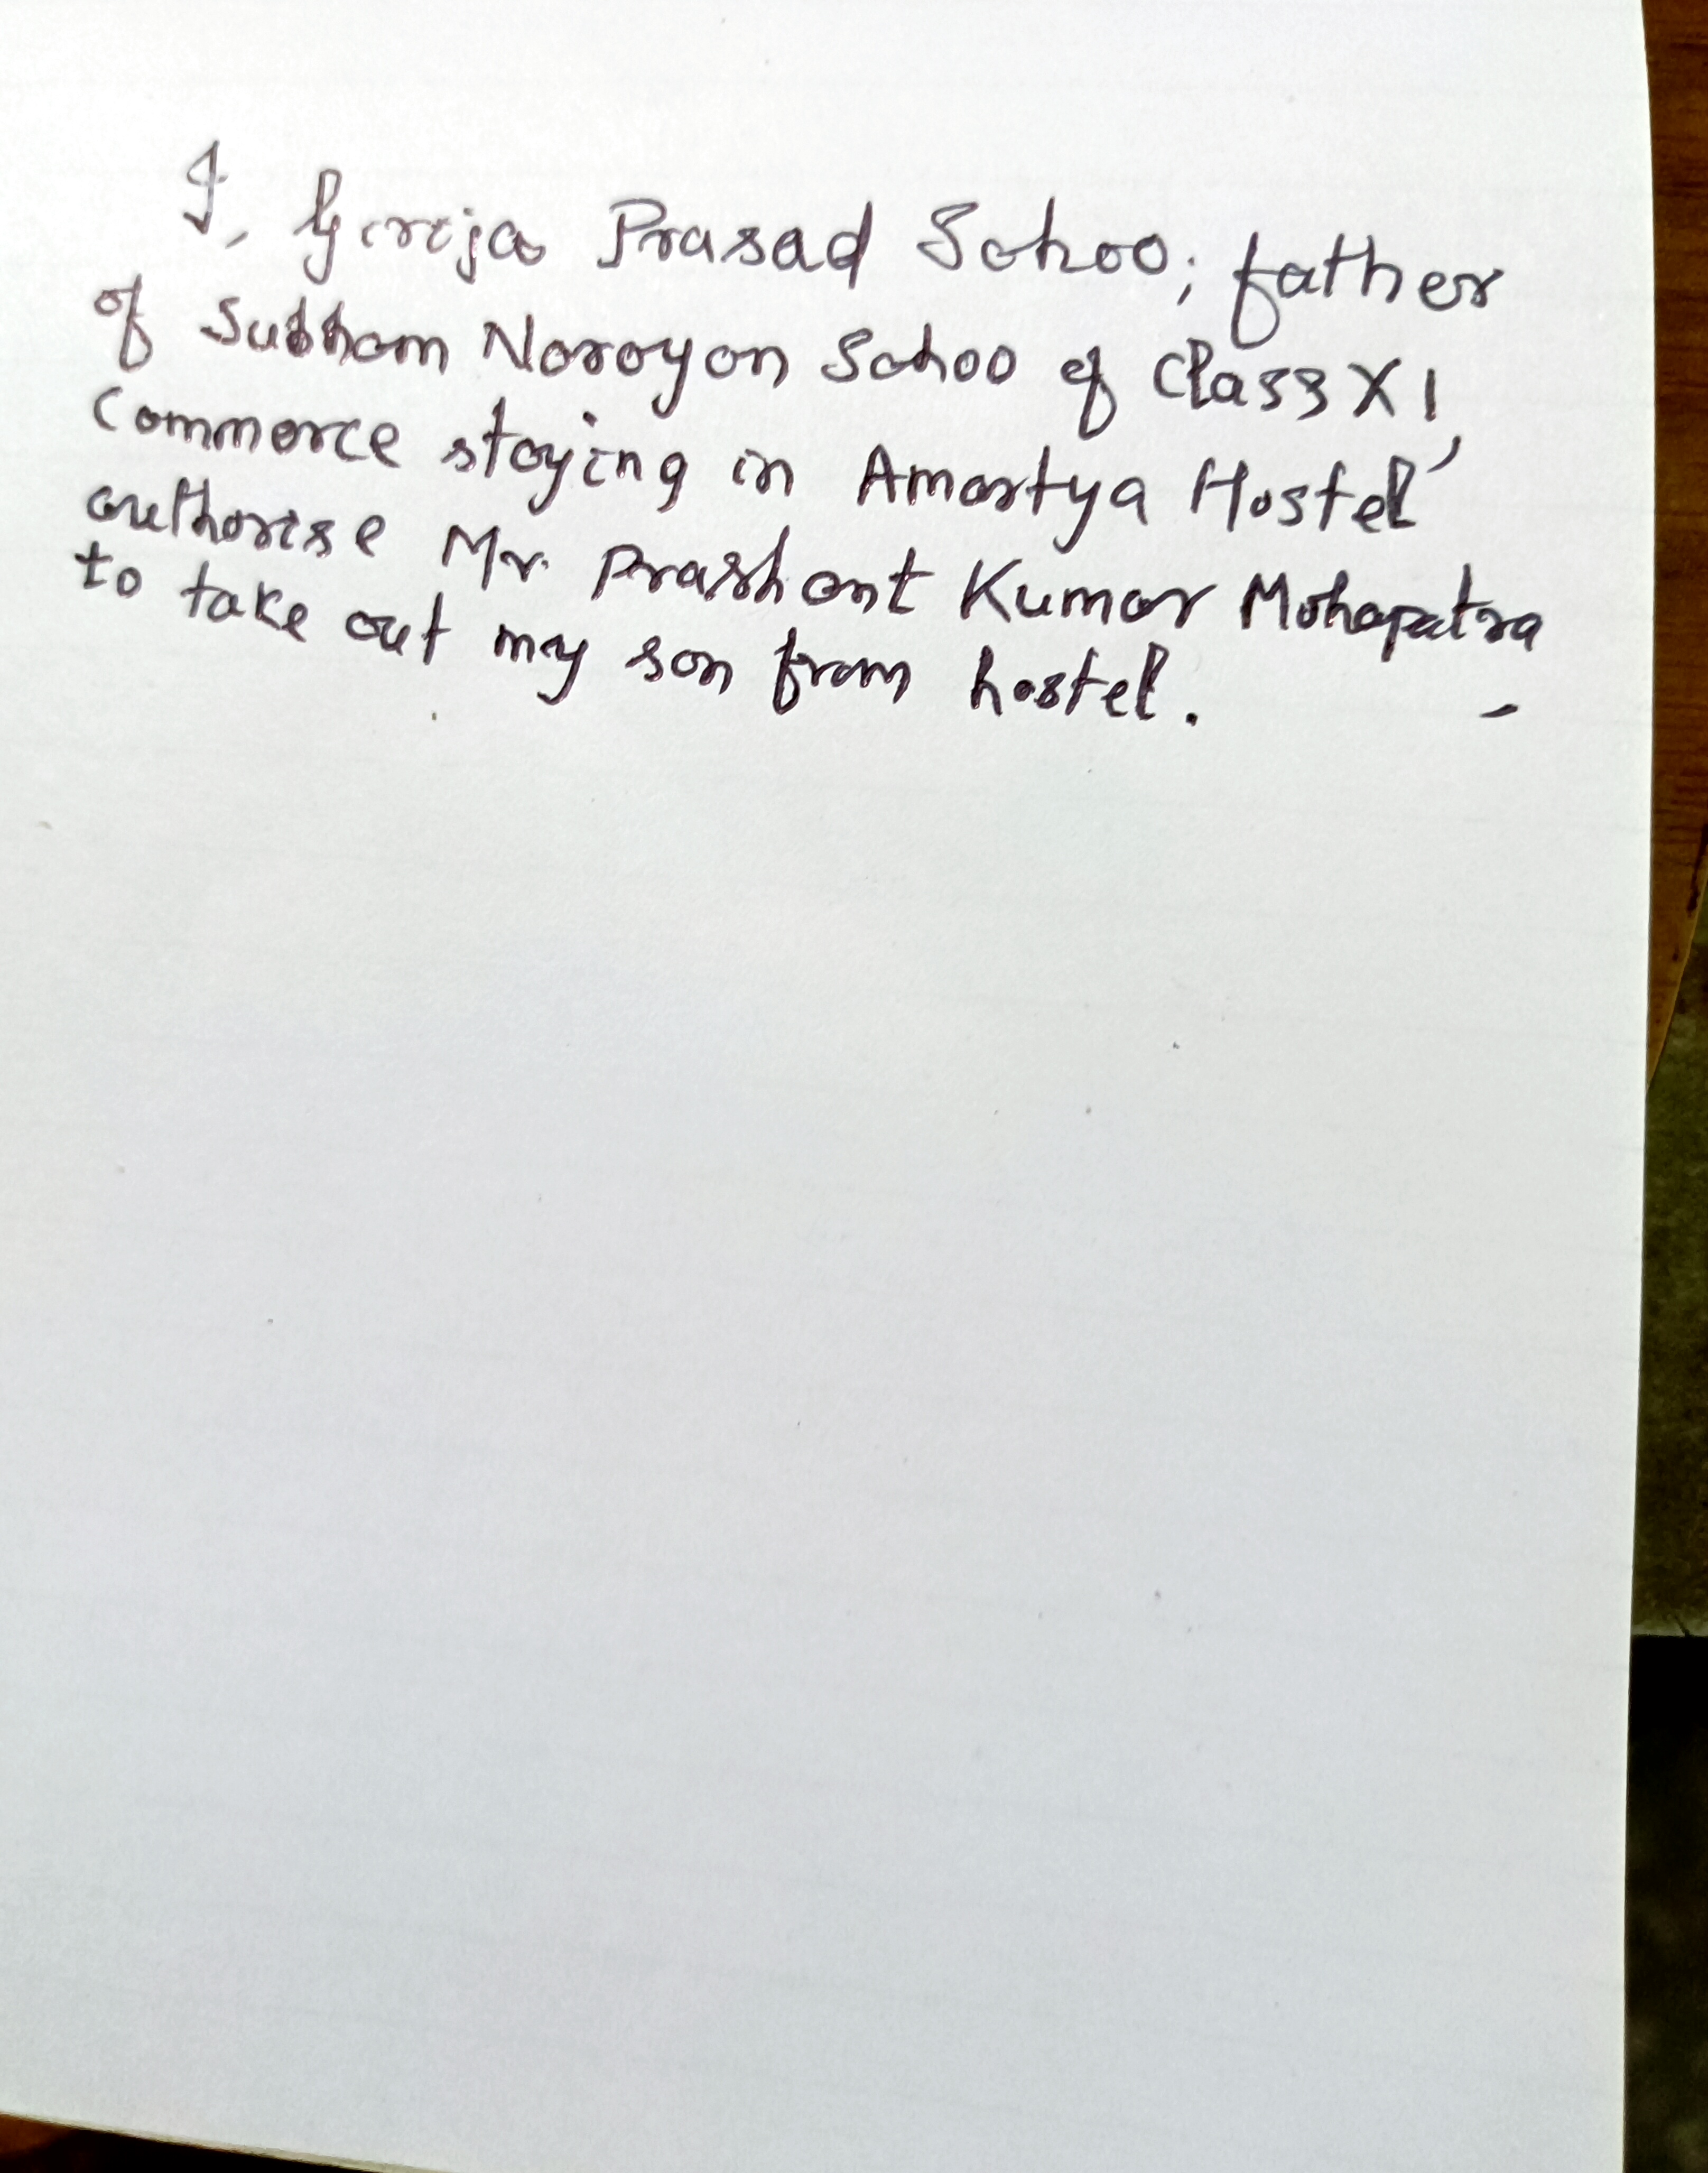 I, Girija Prasad Sahoo, father
of Subham Narayan Sahoo of Class XI,
Commerce staying in Amartya Hostel
authorise Mr. Prashant Kumar Mohapatra
to take out my son from hostel.